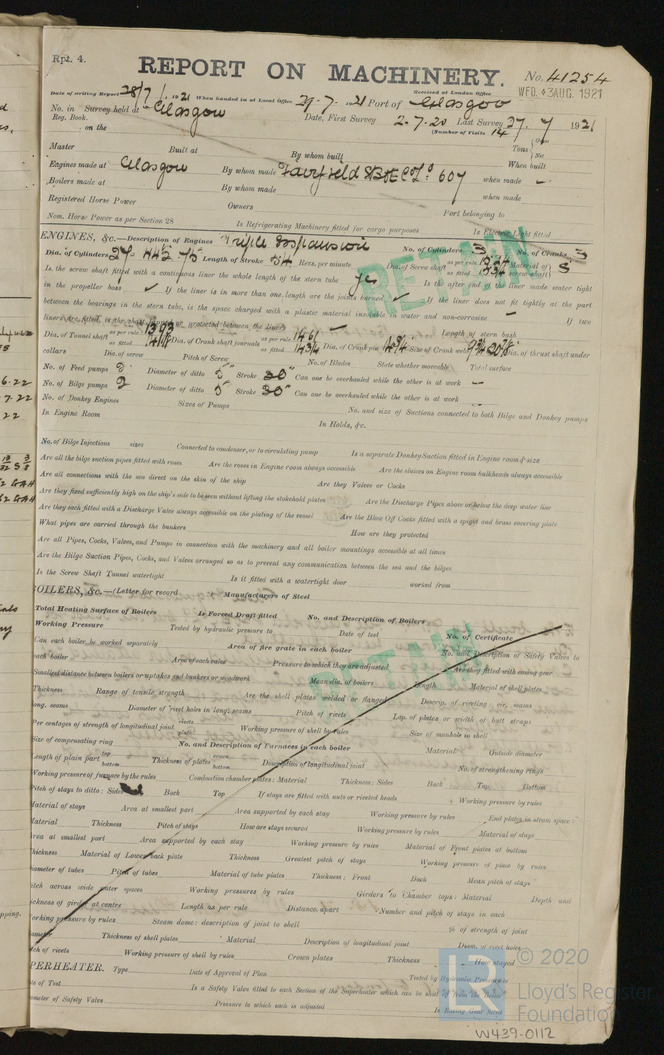 Rpt. 4.
REPORT ON MACHINERY.
No. 41254
Date of writing Report 28/7/1921 When handed in at Local Office 29.7.1921 Port of Glasgow
Received at London Office WED. 3 AUG. 1921
No. in Survey held at Glasgow Date, First Survey 2.7.20 Last Survey 27.7.1921
Reg. Book. (Number of Visits 14
on the Tons Gross Net
Master Built at By whom built When built
Engines made at Glasgow By whom made Fairfield S.B. & E. Co. Ld. 607 when made —
Boilers made at By whom made when made
Registered Horse Power Owners Port belonging to
Nom. Horse Power as per Section 28 Is Refrigerating Machinery fitted for cargo purposes Is Electric Light fitted
ENGINES, &c.—Description of Engines Triple Expansion No. of Cylinders 3 No. of Cranks 3
Dia. of Cylinders 27-44½-75 Length of Stroke 54 Revs. per minute Dia. of Screw shaft as per rule as fitted Material of screw shaft S
Is the screw shaft fitted with a continuous liner the whole length of the stern tube Yes Is the after end of the liner made water tight
in the propeller boss ✓ If the liner is in more than one length are the joints burned ✓ If the liner does not fit tightly at the part
between the bearings in the stern tube, is the space charged with a plastic material insoluble in water and non-corrosive — If two
liners are fitted, is the shaft lapped or protected between the liners — Length of stern bush
Dia. of Tunnel shaft as per rule as fitted Dia. of Crank shaft journals as per rule as fitted 14¾ Dia. of Crank pin Size of Crank webs Dia. of thrust shaft under
collars Dia. of screw Pitch of Screw No. of Blades State whether moveable Total surface
No. of Feed pumps 2 Diameter of ditto 5" Stroke 30" Can one be overhauled while the other is at work —
No. of Bilge pumps 2 Diameter of ditto 5 Stroke 30" Can one be overhauled while the other is at work —
No. of Donkey Engines Sizes of Pumps No. and size of Suctions connected to both Bilge and Donkey pumps
In Engine Room In Holds, &c.
No. of Bilge Injections sizes Connected to condenser, or to circulating pump Is a separate Donkey Suction fitted in Engine room & size
Are all the bilge suction pipes fitted with roses Are the roses in Engine room always accessible Are the sluices on Engine room bulkheads always accessible
Are all connections with the sea direct on the skin of the ship Are they Valves or Cocks
Are they fixed sufficiently high on the ship's side to be seen without lifting the stokehold plates Are the Discharge Pipes above or below the deep water line
Are they each fitted with a Discharge Valve always accessible on the plating of the vessel Are the Blow Off Cocks fitted with a spigot and brass covering plate
What pipes are carried through the bunkers How are they protected
Are all Pipes, Cocks, Valves, and Pumps in connection with the machinery and all boiler mountings accessible at all times
Are the Bilge Suction Pipes, Cocks, and Valves arranged so as to prevent any communication between the sea and the bilges
Is the Screw Shaft Tunnel watertight Is it fitted with a watertight door worked from
BOILERS, &c.—(Letter for record Manufacturers of Steel
Total Heating Surface of Boilers Is Forced Draft fitted No. and Description of Boilers
Working Pressure Tested by hydraulic pressure to Date of test No. of Certificate
Can each boiler be worked separately Area of fire grate in each boiler No. and Description of Safety Valves to
each boiler Area of each valve Pressure to which they are adjusted Are they fitted with easing gear
Smallest distance between boilers or uptakes and bunkers or woodwork Mean dia. of boilers Length Material of shell plates
Thickness Range of tensile strength Are the shell plates welded or flanged Descrip. of riveting: cir. seams
long. seams Diameter of rivet holes in long. seams Pitch of rivets Lap of plates or width of butt straps
Per centages of strength of longitudinal joint rivets plate Working pressure of shell by rules Size of manhole in shell
Size of compensating ring No. and Description of Furnaces in each boiler Material Outside diameter
Length of plain part top bottom Thickness of plates crown bottom Description of longitudinal joint No. of strengthening rings
Working pressure of furnace by the rules Combustion chamber plates: Material Thickness: Sides Back Top Bottom
Pitch of stays to ditto: Sides Back Top If stays are fitted with nuts or riveted heads Working pressure by rules
Material of stays Area at smallest part Area supported by each stay Working pressure by rules End plates in steam space:
Material Thickness Pitch of stays How are stays secured Working pressure by rules Material of stays
Area at smallest part Area supported by each stay Working pressure by rules Material of Front plates at bottom
Thickness Material of Lower back plate Thickness Greatest pitch of stays Working pressure of plate by rules
Diameter of tubes Pitch of tubes Material of tube plates Thickness: Front Back Mean pitch of stays
Pitch across wide water spaces Working pressures by rules Girders to Chamber tops: Material Depth and
thickness of girder at centre Length as per rule Distance apart Number and pitch of stays in each
Working pressure by rules Steam dome: description of joint to shell % of strength of joint
Diameter Thickness of shell plates Material Description of longitudinal joint Diam. of rivet holes
Pitch of rivets Working pressure of shell by rules Crown plates Thickness How stayed
SUPERHEATER. Type Date of Approval of Plan Tested by Hydraulic Pressure to
Date of Test Is a Safety Valve fitted to each Section of the Superheater which can be shut off from the Boiler
Diameter of Safety Valve Pressure to which each is adjusted Is Easing Gear fitted
RETAIN
RETAIN
© 2020
Lloyd's Register
Foundation
W439-0112